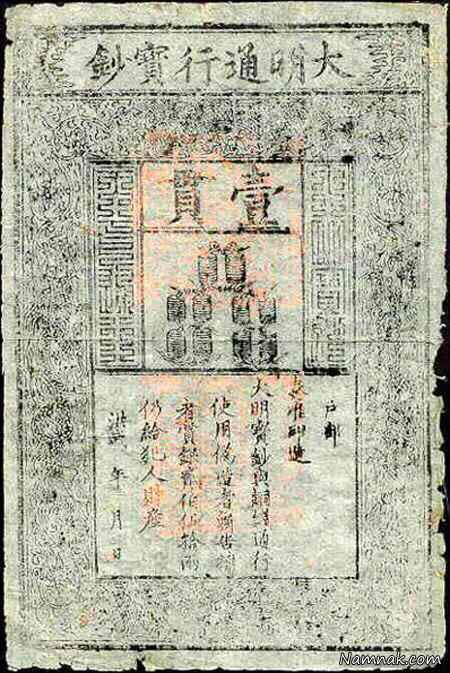 大明通行寶鈔
壹貫
戶部
奏准印造
大明寶鈔與銅錢通行
使用偽造者斬告捕
者賞銀貳伯伍拾兩
仍給犯人財產
洪武 年 月 日
Namnak.com